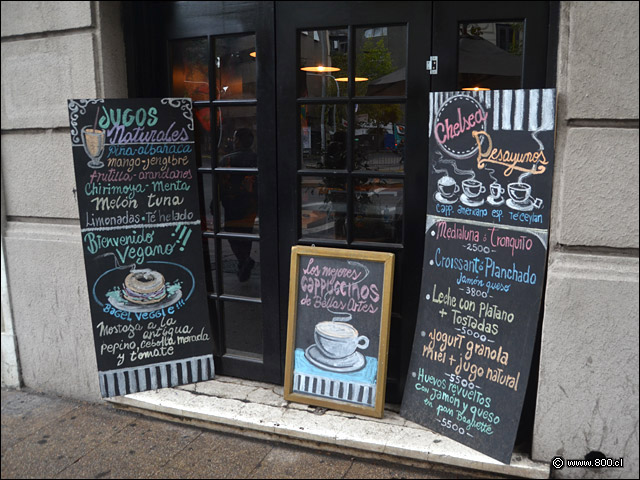 Jugos
Naturales
Piña-albahaca
mango-jengibre
frutilla-arandanos
Chirimoya-Menta
Melón tuna
Limonadas-Te helado
Bienvenido
Vegano!!!
BAGEL VEGGIE!!!
Mostaza a la
antigua
pepino, cebolla morada
y tomate
Los mejores
cappuccinos
de Bellas Artes
Chelsea
Desayunos
Capp. americano esp. Te Ceylan
Medialuna ó Tronquito
-2500-
Croissant ó Planchado
jamón queso
-3800-
Leche con Platano
+ Tostadas
-5000-
yogurt granola
miel + jugo natural
-5500-
Huevos revueltos
con Jamón y queso
en pan Baguette
-5500-
© www.800.cl